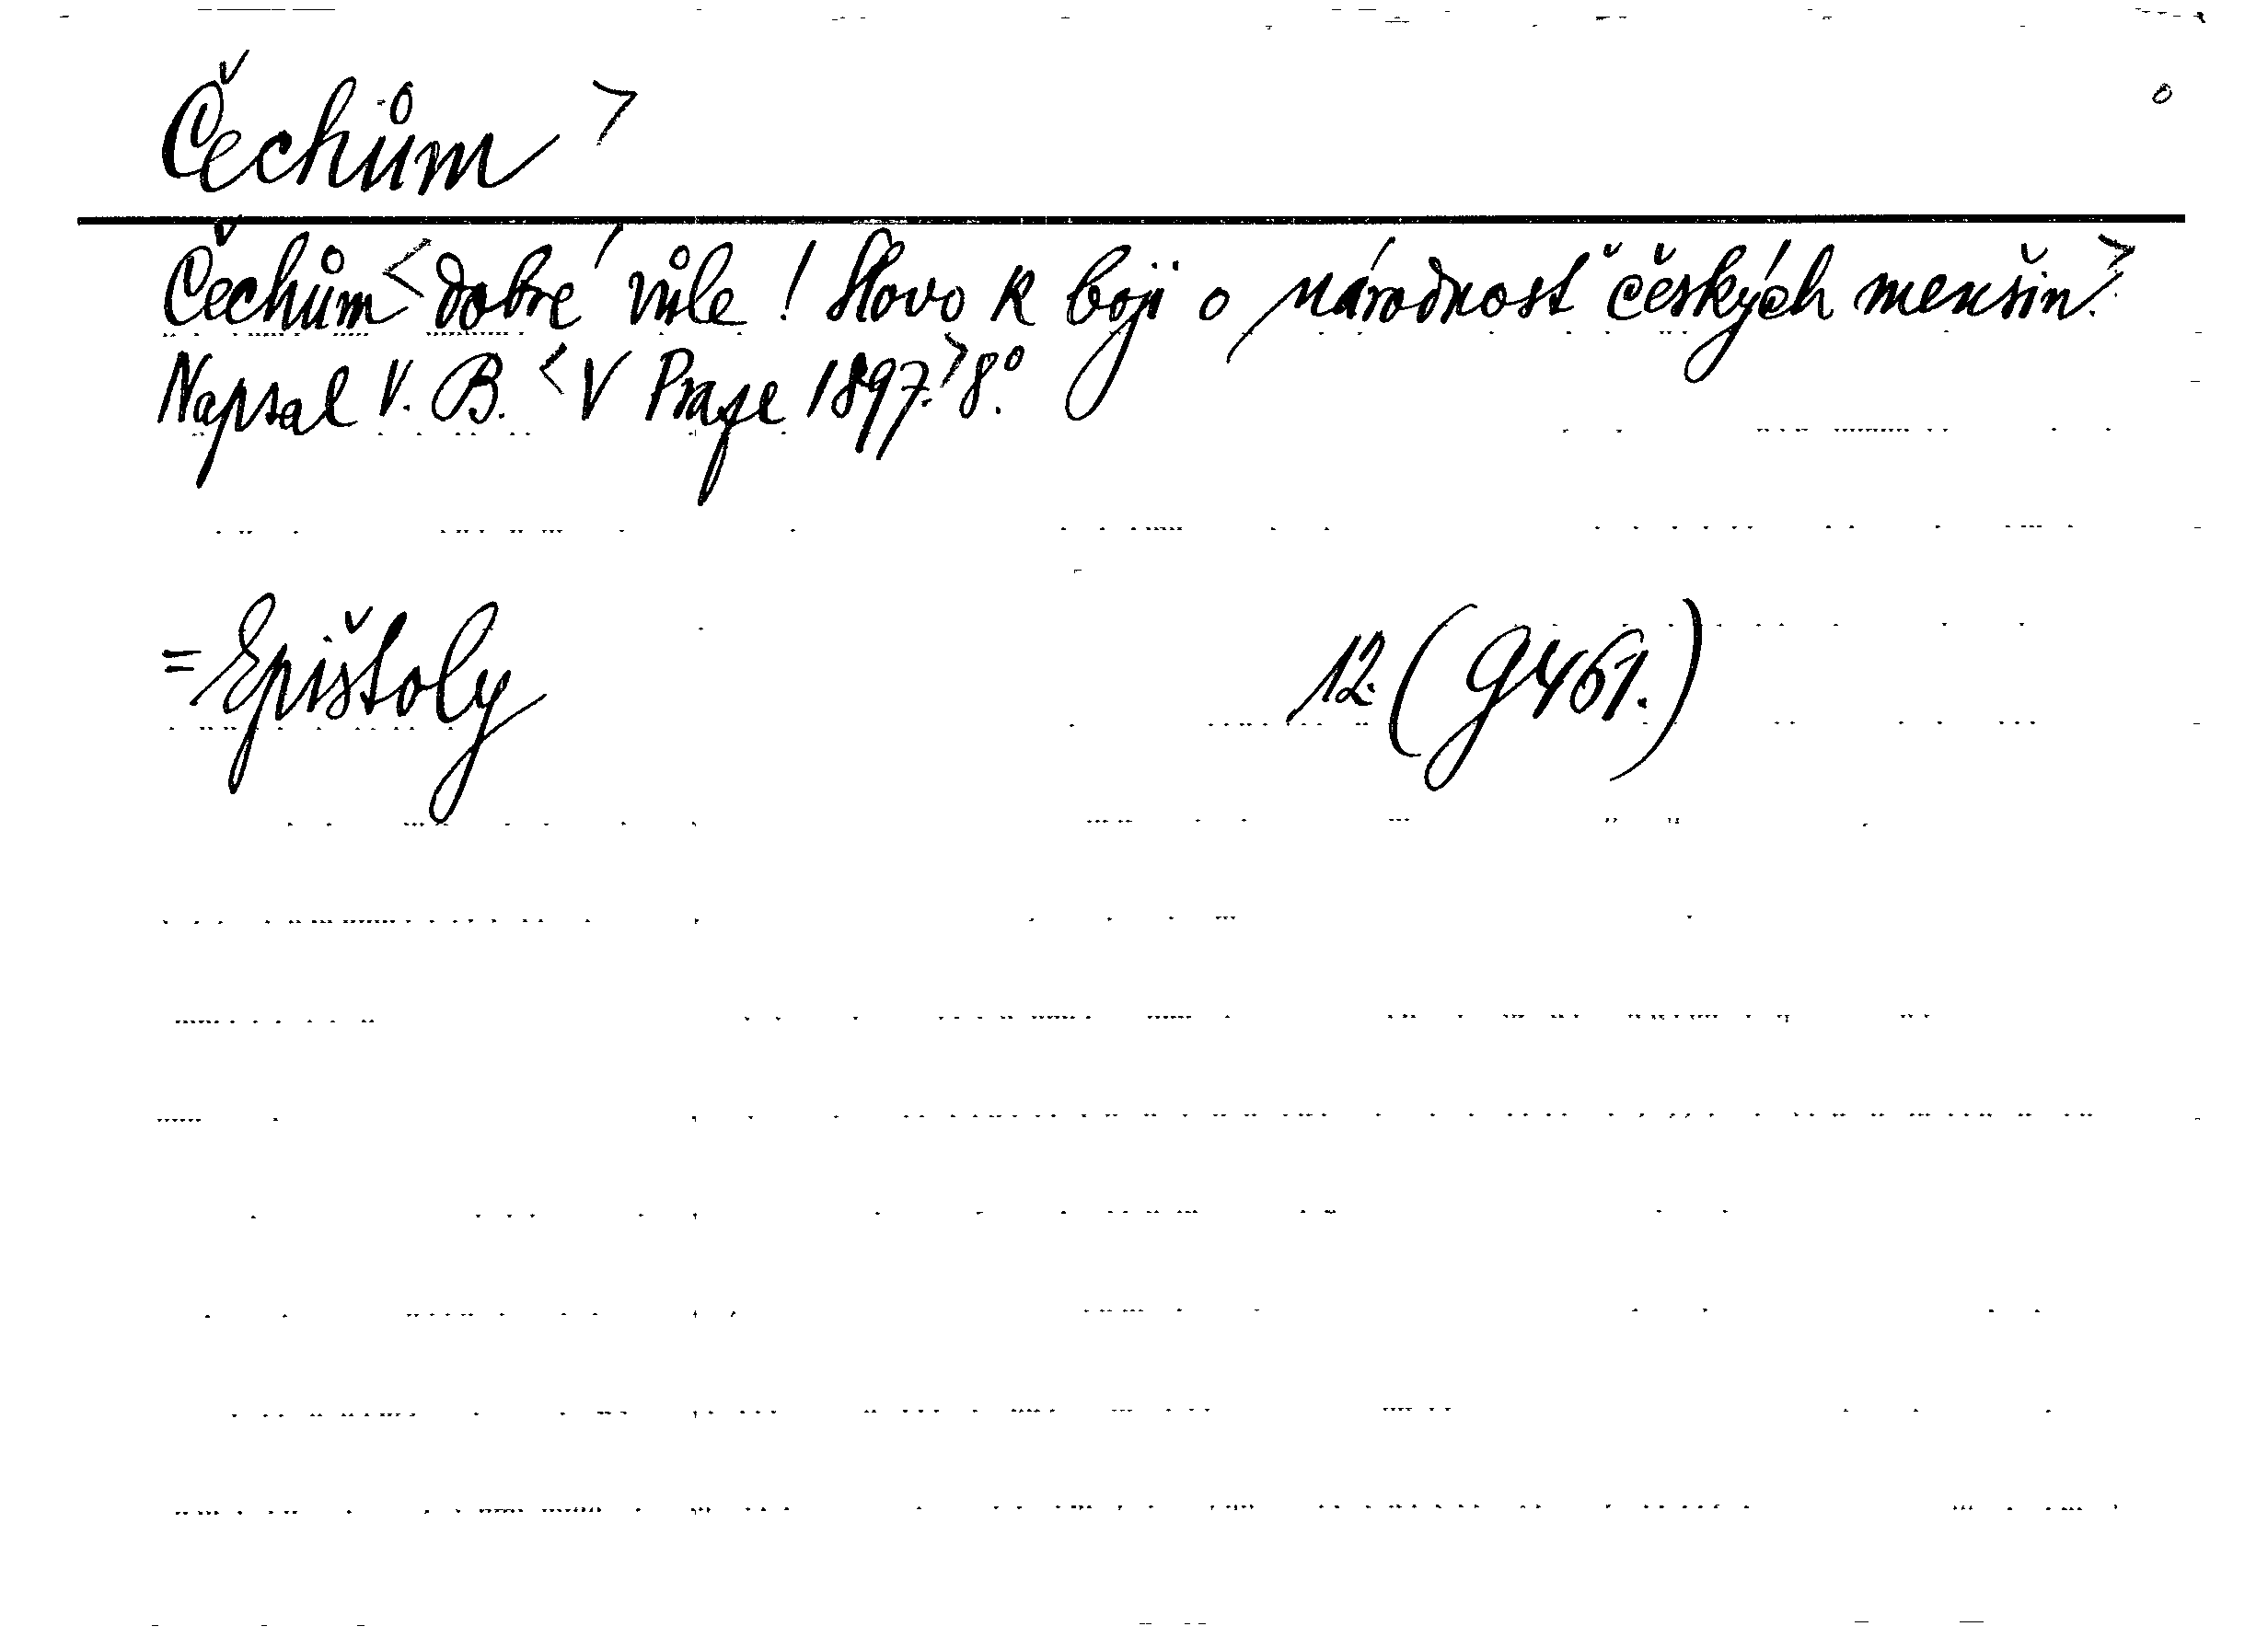 Čechům >
Čechům < dobré vůle! Slovo k boji o národnost českých menšin. >
Napsal V. B. < V Praze 1897. > 8.°
= Epištoly 12. (G461.)